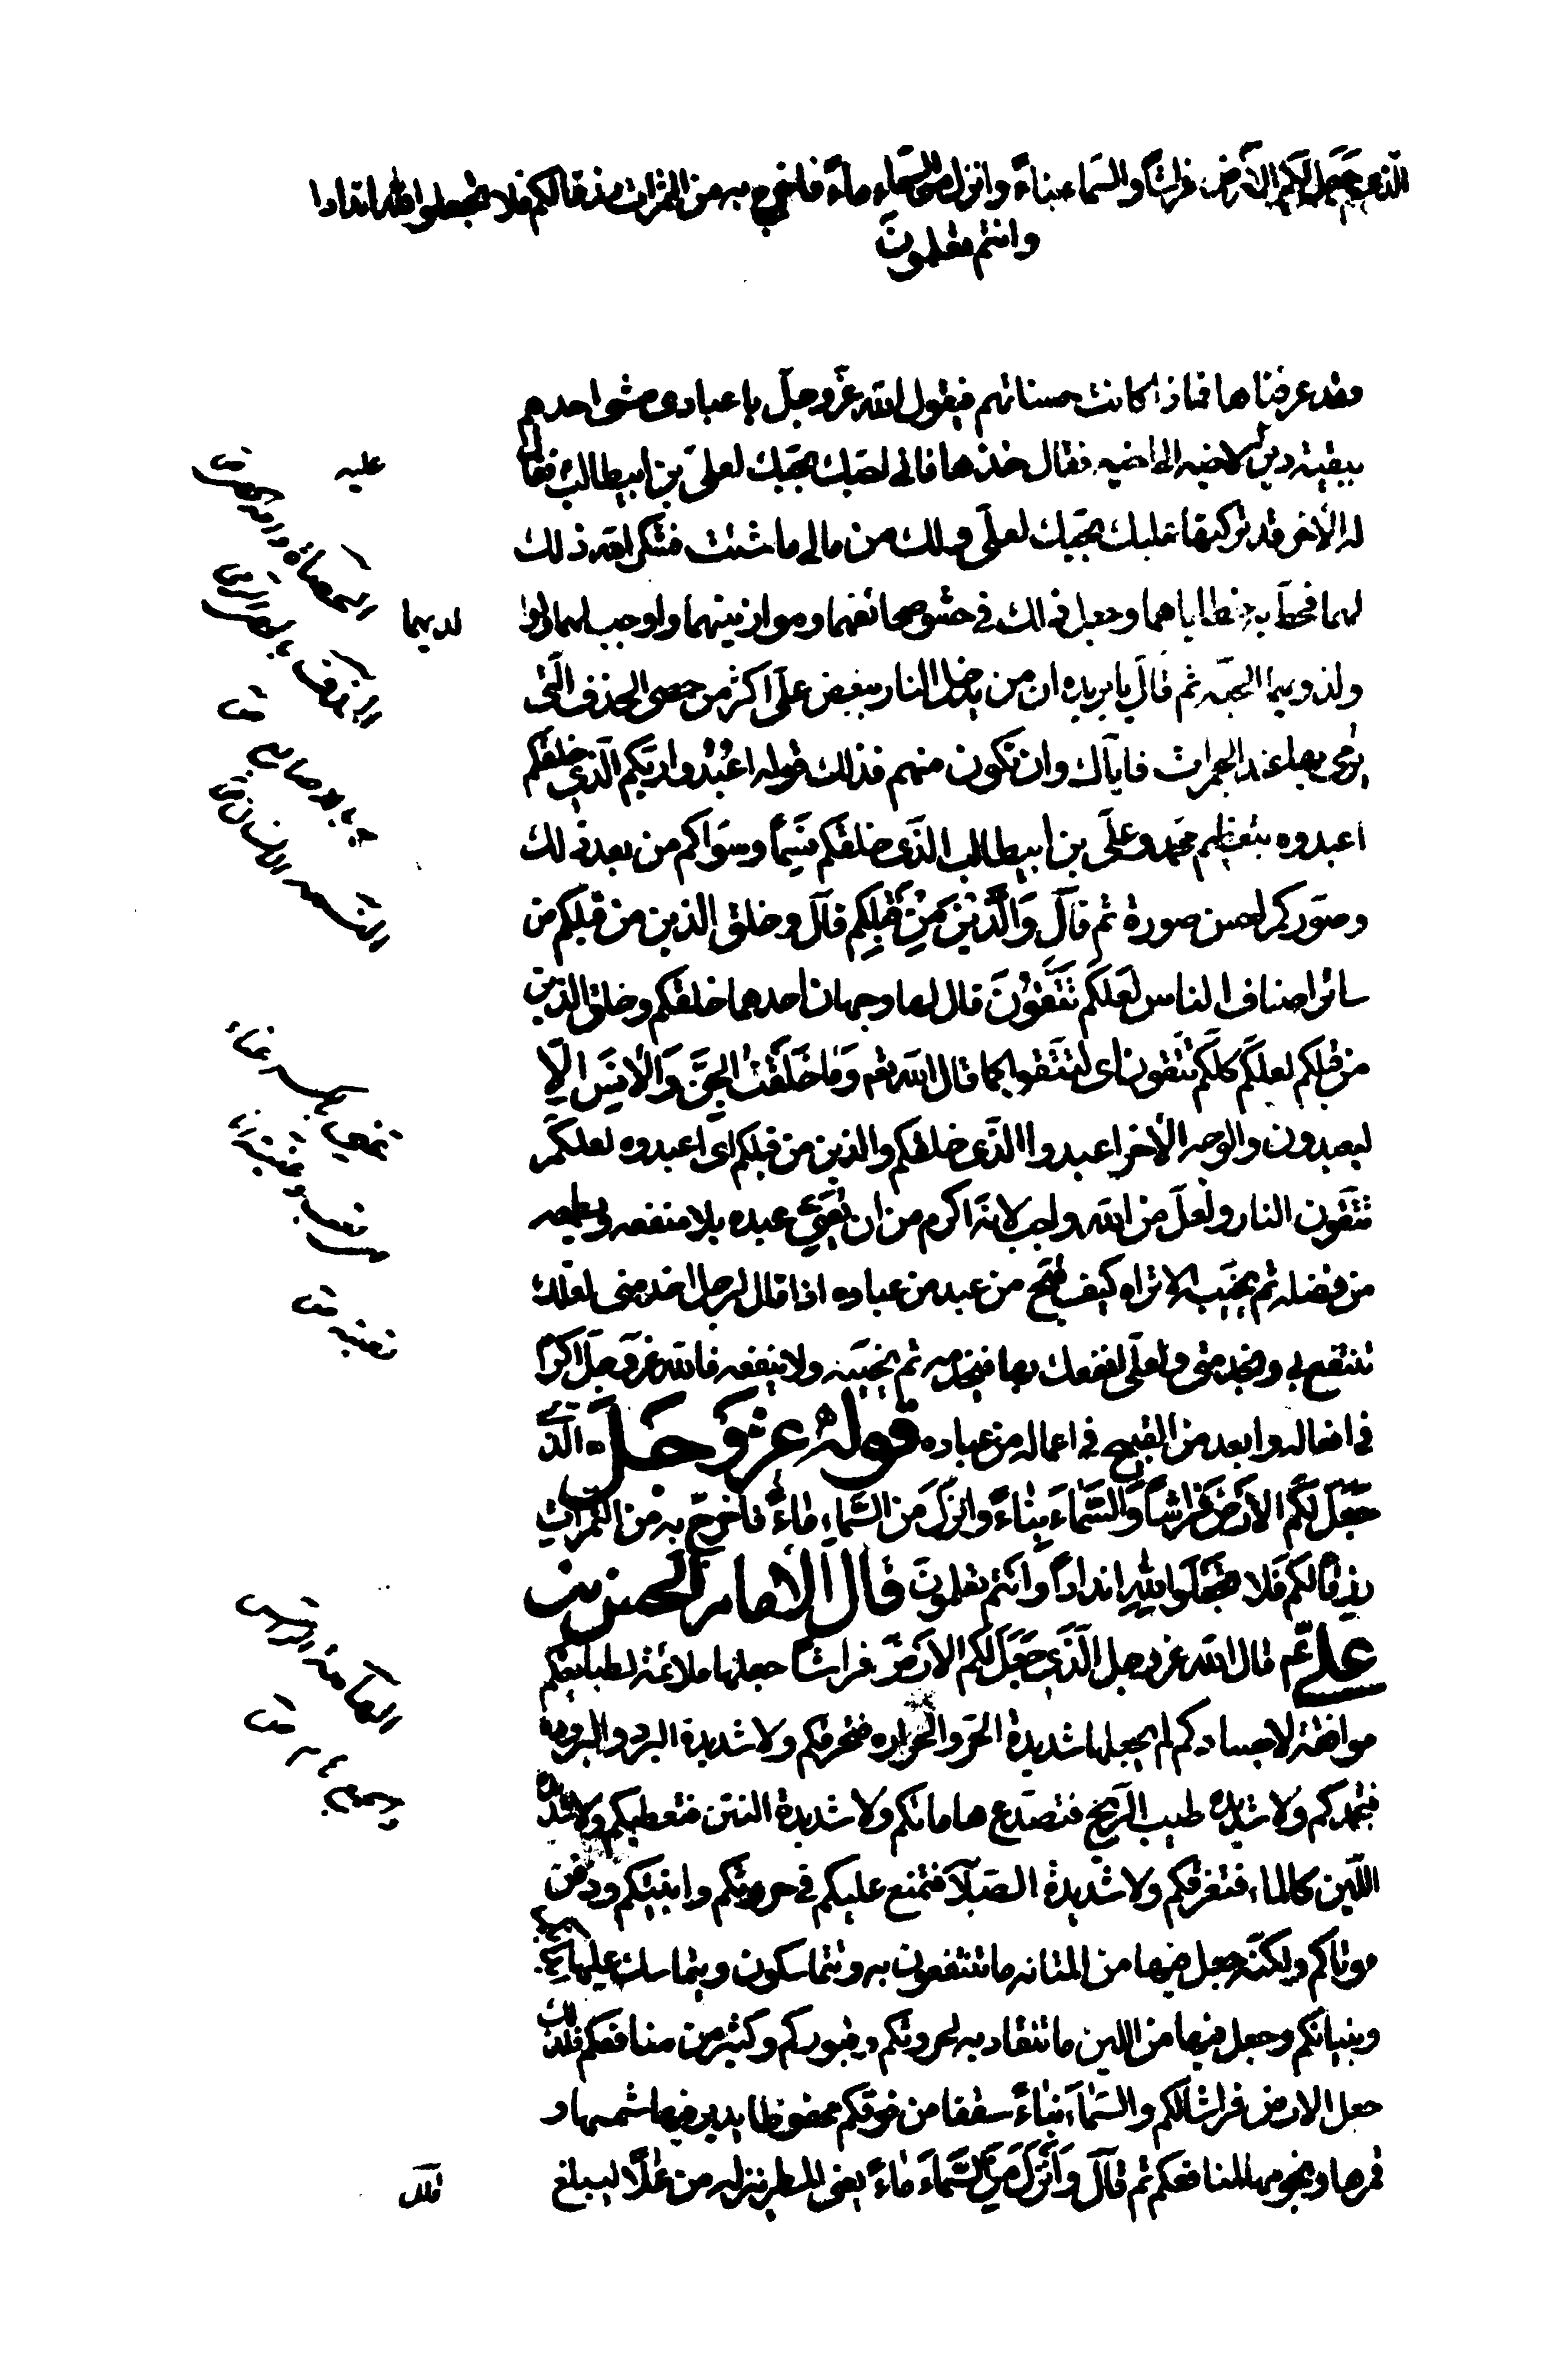 الّذى جَعَلَ لَكُمُ الاَرْضَ فراشًا والسّماء بناءً وانزل من السّماء ماءً فاخرج به من الثمرات رزقا لكم فلا تجعلوا لله اندادا
وانتم تعلمون
وقد عرفناها فماذا كانت حسناتهم فيقول الله عزّ وجلّ يا عبادى مشى احدهم
ببقية دين لاخيه الى اخيه فقال خذها فانى احبك بحبّك لعلىّ بن ابيطالب فقال
له الآخر قد تركتها عليك بحبّك لعلى ولك من مالى ما شئت فشكر الله ذلك
لهما فحطّ به خطاياهما وجعل ذلك فى حشو صحائفهما وموازينهما واوجب لهما ولوا
ولذريهما الجنّه ثم قال يا بريده ان من يدخل النار ببغض علىّ اكثر من حصى الخذف الّتى
يرمى بها عند الجمرات فايّاك وان تكون منهم فذلك قوله اعْبُدُوا ربّكم الّذى خلقكم
اعبدوه بتعظيم محمد وعلىّ بن ابيطالب الّذى خلقكم نسيمًا وسوّاكم من بعد ذلك
وصوّركم احسن صورة ثم قالَ وَالَّذِينَ مِنْ قَبْلِكم قال وخلق الذين من قبلكم من
سائر اصناف الناس لَعَلَّكُم تَتَّقُونَ قال لها وجهان احدهما خلقكم وخلق الذين
من قبلكم لعلّكم كلّكم تتّقون اى لتتّقوا كما قال الله تعه وَمَا خَلَقْتُ الجِنَّ وَالاِنْسَ اِلّا
ليعبدون والوجه الآخر اعبدوا الّذى خلقكم والذين من قبلكم اى اعبدوه لعلكم
تتّقون النار ولعلّ من الله واجب لانّه اكرم من ان يعنّى عبده بلا منفعه ويطمعه
من فضله ثم يخيّبه الا تراه كيف قبح من عبد من عباده اذا قال لرجل اخدمنى لعلك
تنتفع بى وتخدمنى ولعلّى انفعك بها فيخدمه ثم يخيّبه ولا ينفعه فالله عزّ وجلّ اكرم
فى افعاله وابعد من القبيح فى اعماله من عباده قولهُ عزّ وَجَلّ الّذى
جَعَلَ لَكُمُ الاَرْضَ فِرَاشًا وَالسَّمَاءَ بِنَاءً وَاَنْزَلَ مِنَ السَّمَاءِ مَاءً فاخرج به من الثمرات
رزقًا لكم فَلا تَجْعَلُوا لِلّٰهِ اندادًا وانتم تعلمون قال الامام الحسن بن
علىّ عم قال الله عزّ وجل الّذى جَعَلَ لكم الارضَ فراشًا جعلها ملائمة لطبايعكم
موافقة لاجسادكم لم يجعلها شديدة الحرّ والحراره فتحرقكم ولا شديدة البرد والبروده
فتجمدكم ولا شديده طيب الرّيح فتصدّع هاماتكم ولا شديدة النتن فتعطبكم ولا شديدة
اللّين كالماء فتغرقكم ولا شديدة الصّلابة فتمتنع عليكم فى حروثكم وابنيتكم ودفن
موتاكم ولكنّه جعل فيها من المتانه ما تنتفعون به وتتماسكون ويتماسك عليها
وبنيانكم وجعل فيها من اللين ما تنقاد به لحروثكم وقبوركم وكثير من منافعكم فلذلك
جعل الارض فراشا لكم والسّمآء بناءً سقفا من فوقكم محفوظا يدير فيها شمسها و
قمرها ونجومها لمنافعكم ثم قالَ وَاَنْزَلَ مِنَ السَّمَاءِ مَاءً يعنى المطر ينزله من علا ليبلغ
عليه
لديهما
قلل